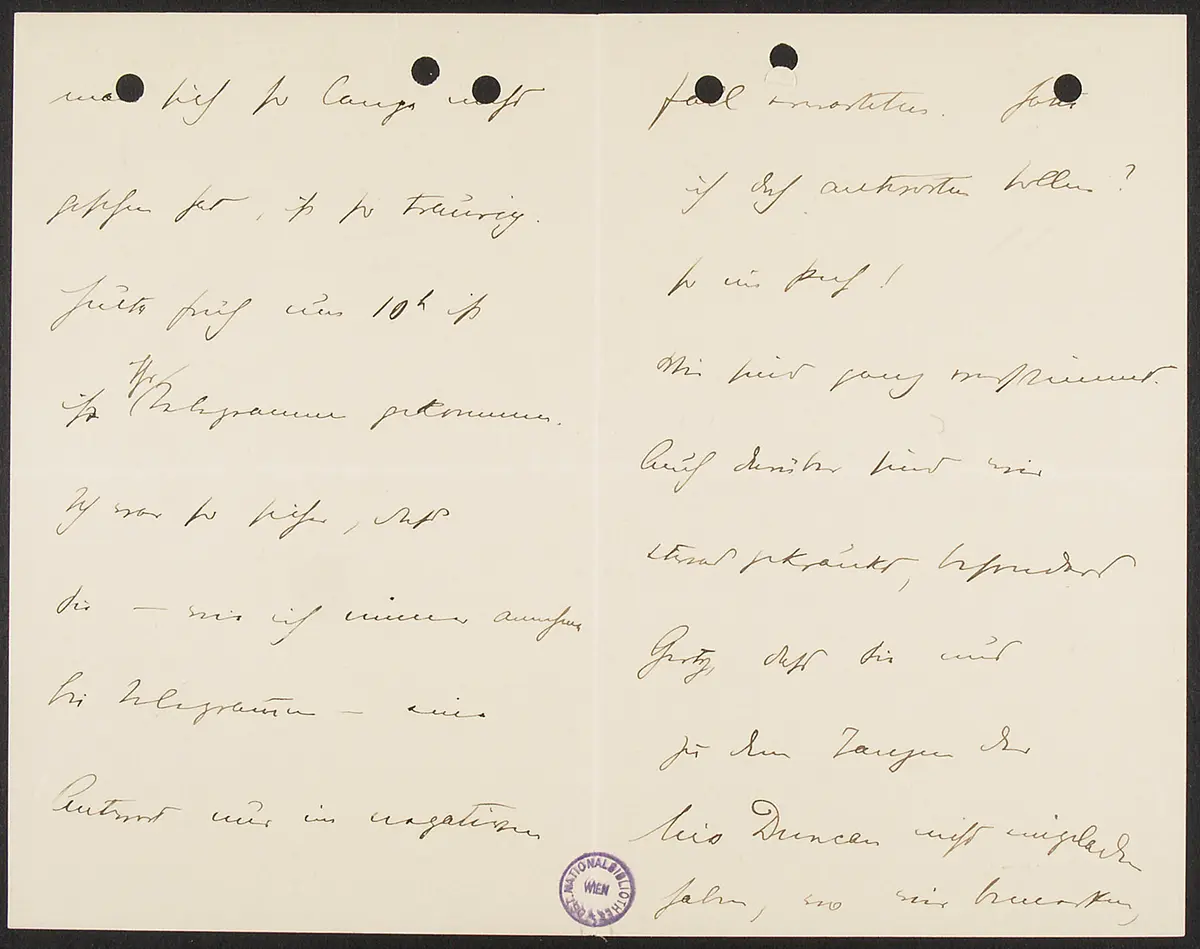 man sich so lange nicht
gesehen hat, ist so traurig.
Heute früh um 10h ist
ist Ihr Telegramm gekommen.
Ich war so sicher, dass
Sie — wie ich immer annehme
bei Telegrammen — eine
Antwort nur im negativen
Fall erwarteten. Hätte
ich doch antworten sollen?
So ein Pech!
Wir sind ganz verstimmt.
Auch darüber sind wir
etwas gekränkt, besonders
Gerty, dass Sie uns
zu dem Tanzen der
Miss Duncan nicht eingeladen
haben, wo wir bemerken,
ÖST. NATIONALBIBLIOTHEK WIEN